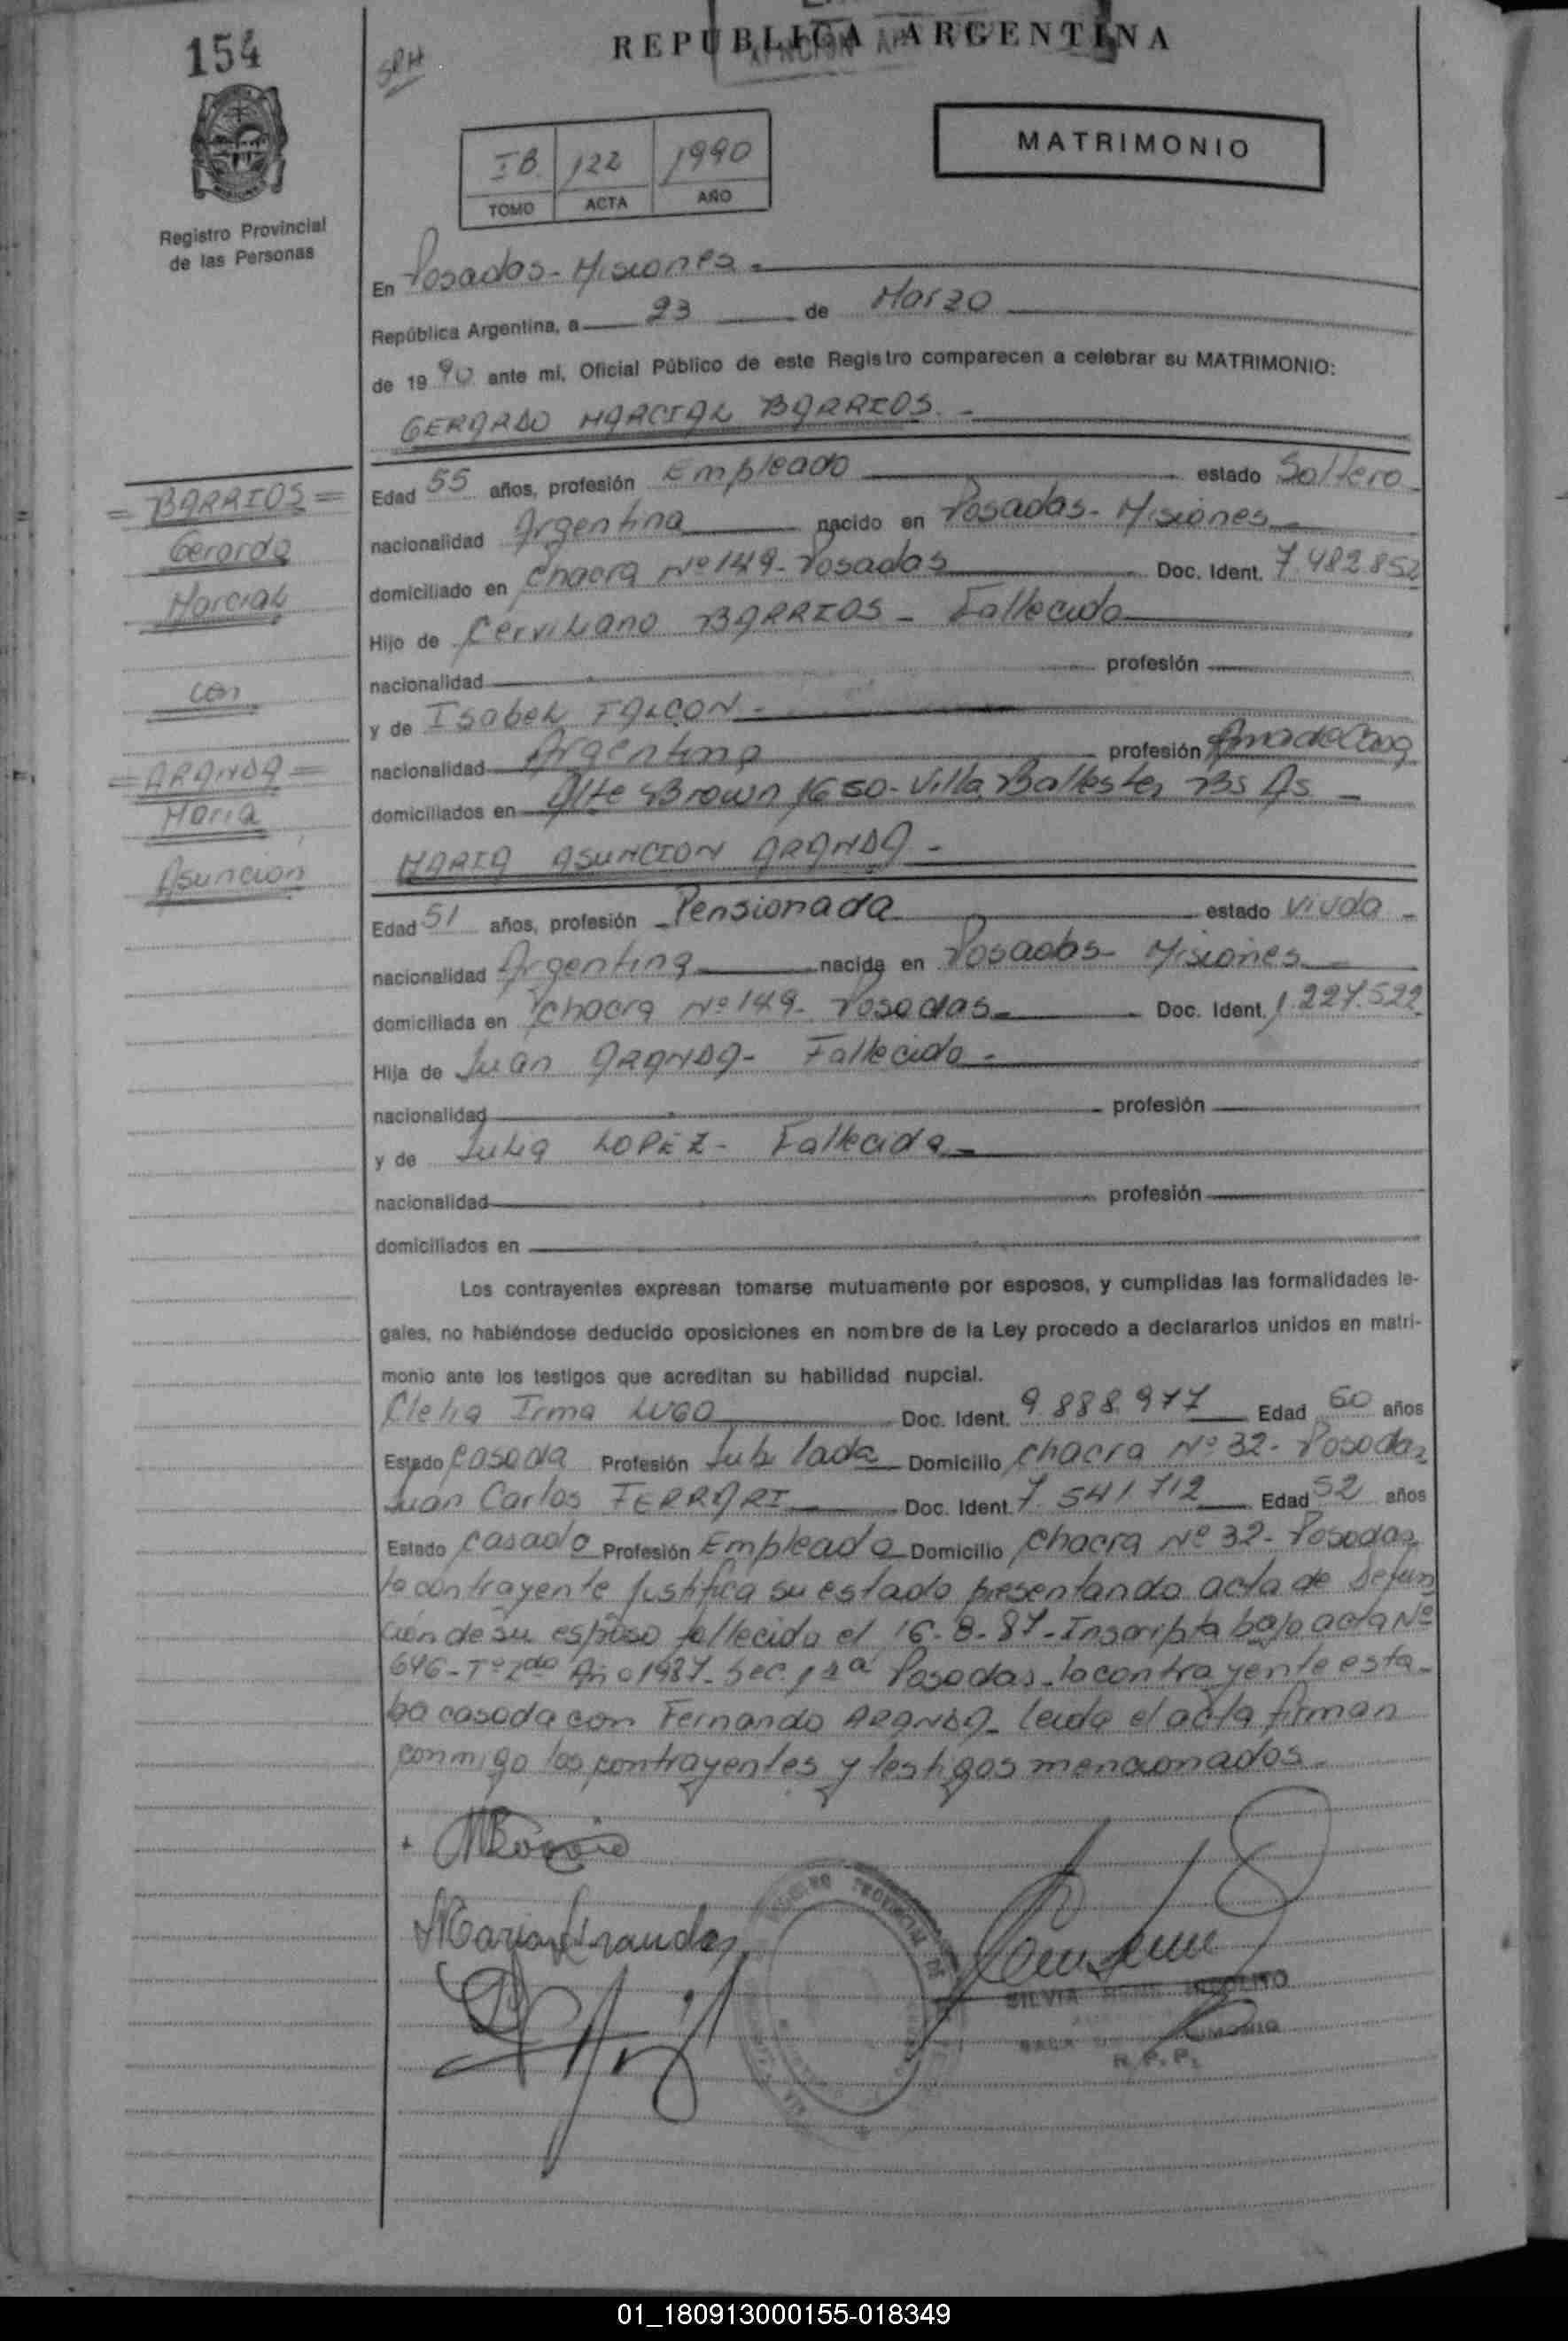 154
SRH
REPUBLICA ARGENTINA
Registro Provincial
de las Personas
IB 122 1990
TOMO ACTA AÑO
MATRIMONIO
En Posadas - Misiones -
República Argentina, a 23 de Marzo
de 19 90 ante mi, Oficial Público de este Registro comparecen a celebrar su MATRIMONIO:
GERARDO MARCIAL BARRIOS. -
= BARRIOS =
Gerardo
Marcial
con
= ARANDA =
Maria
Asuncion
Edad 55 años, profesión Empleado estado Soltero
nacionalidad Argentina nacido en Posadas - Misiones
domiciliado en Chacra Nº 149 - Posadas Doc. Ident. 7.482.852
Hijo de Cerviliano BARRIOS - Fallecido
nacionalidad profesión
y de Isabel FALCON -
nacionalidad Argentina profesión Ama de Casa
domiciliados en Alte Brown 1650 - Villa Ballester Bs As -
MARIA ASUNCION ARANDA -
Edad 51 años, profesión Pensionada estado Viuda -
nacionalidad Argentina nacida en Posadas - Misiones
domiciliada en Chacra Nº 149 - Posadas Doc. Ident. 1.227.522
Hija de Juan ARANDA - Fallecido -
nacionalidad profesión
y de Julia LOPEZ - Fallecida -
nacionalidad profesión
domiciliados en
Los contrayentes expresan tomarse mutuamente por esposos, y cumplidas las formalidades le-
gales, no habiéndose deducido oposiciones en nombre de la Ley procedo a declararlos unidos en matri-
monio ante los testigos que acreditan su habilidad nupcial.
Clelia Irma LUGO Doc. Ident. 9.888.977 Edad 60 años
Estado Casada Profesión Jubilada Domicilio Chacra Nº 32 - Posadas
Juan Carlos FERRARI Doc. Ident. 7.541.712 Edad 52 años
Estado Casado Profesión Empleado Domicilio Chacra Nº 32 - Posadas
la contrayente justifica su estado presentando acta de Defun
ción de su esposo fallecido el 16-8-87 - Inscripta bajo acta Nº
646 - Tº 2do Año 1987 - Sec. 1ra Posadas - la contrayente esta-
ba casada con Fernando ARANDA - leida el acta firman
conmigo los contrayentes y testigos mencionados.
Maria Aranda
REGISTRO PROVINCIAL DE
SILVIA IPOLITO
R. P. P.
01_180913000155-018349